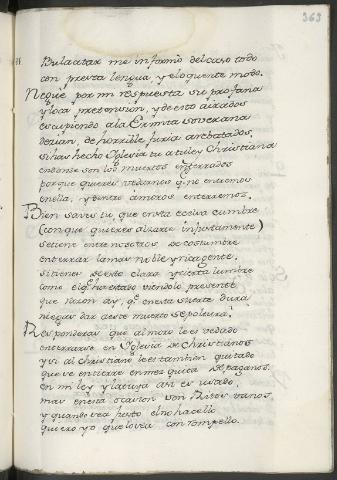 363
Bulaatar me informo del caso todo
con presta lengua, y eloquente modo.
Negué por mi respuesta su profana
y loca pretension, y desto airados
escupiendo a la Ermita soverana
dezian, de horrible furia arebatados,
si has hecho Iglesia tu a tu ley Christiana
endonde son los muertos enterrados
porque quieres vedarnos q. no entremos
enella, y dentro a muertos enterremos.
Bien saves tu, que en esta ecelsa cumbre
(con que quieres alzarte injustamente)
se tiene entre nosotros de costumbre
enterrar la mas noble y rica gente.
si tienes desto clara y cierta lumbre
como el q. ha estado viendolo presente
que razon ay, q. en esta suerte dura
niegas dar a este muerto sepoltura?
Respondera que al moro le es vedado
enterrarse en Iglesia de Christianos
y si al christiano le es tambien quitado
que se entierre en mezquita de paganos.
en mi ley y la tuya asi es usado,
mas en esta ocasion son Ritos vanos,
y quando sea justo el no hacello
quiero yo que lo sea con rompello.